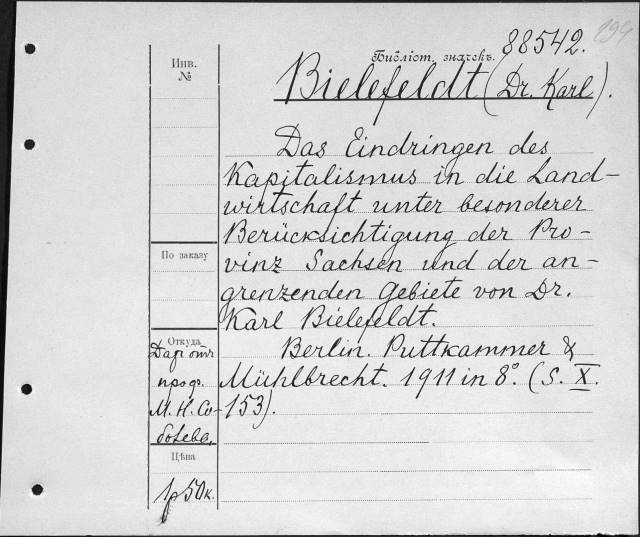 194
88542.
Библіот. значекъ.
Bielefeldt (Dr. Karl).
Das Eindringen des
Kapitalismus in die Land-
wirtschaft unter besonderer
Berücksichtigung der Pro-
vinz Sachsen und der an-
grenzenden Gebiete von Dr.
Karl Bielefeldt.
Berlin. Puttkammer &
Mühlbrecht. 1911 in 8°. (S. X.
153).
Инв.
№
По заказу
Откуда
Даръ отъ
проф.
М. Н. Со-
болева,
Цѣна
1р50к.